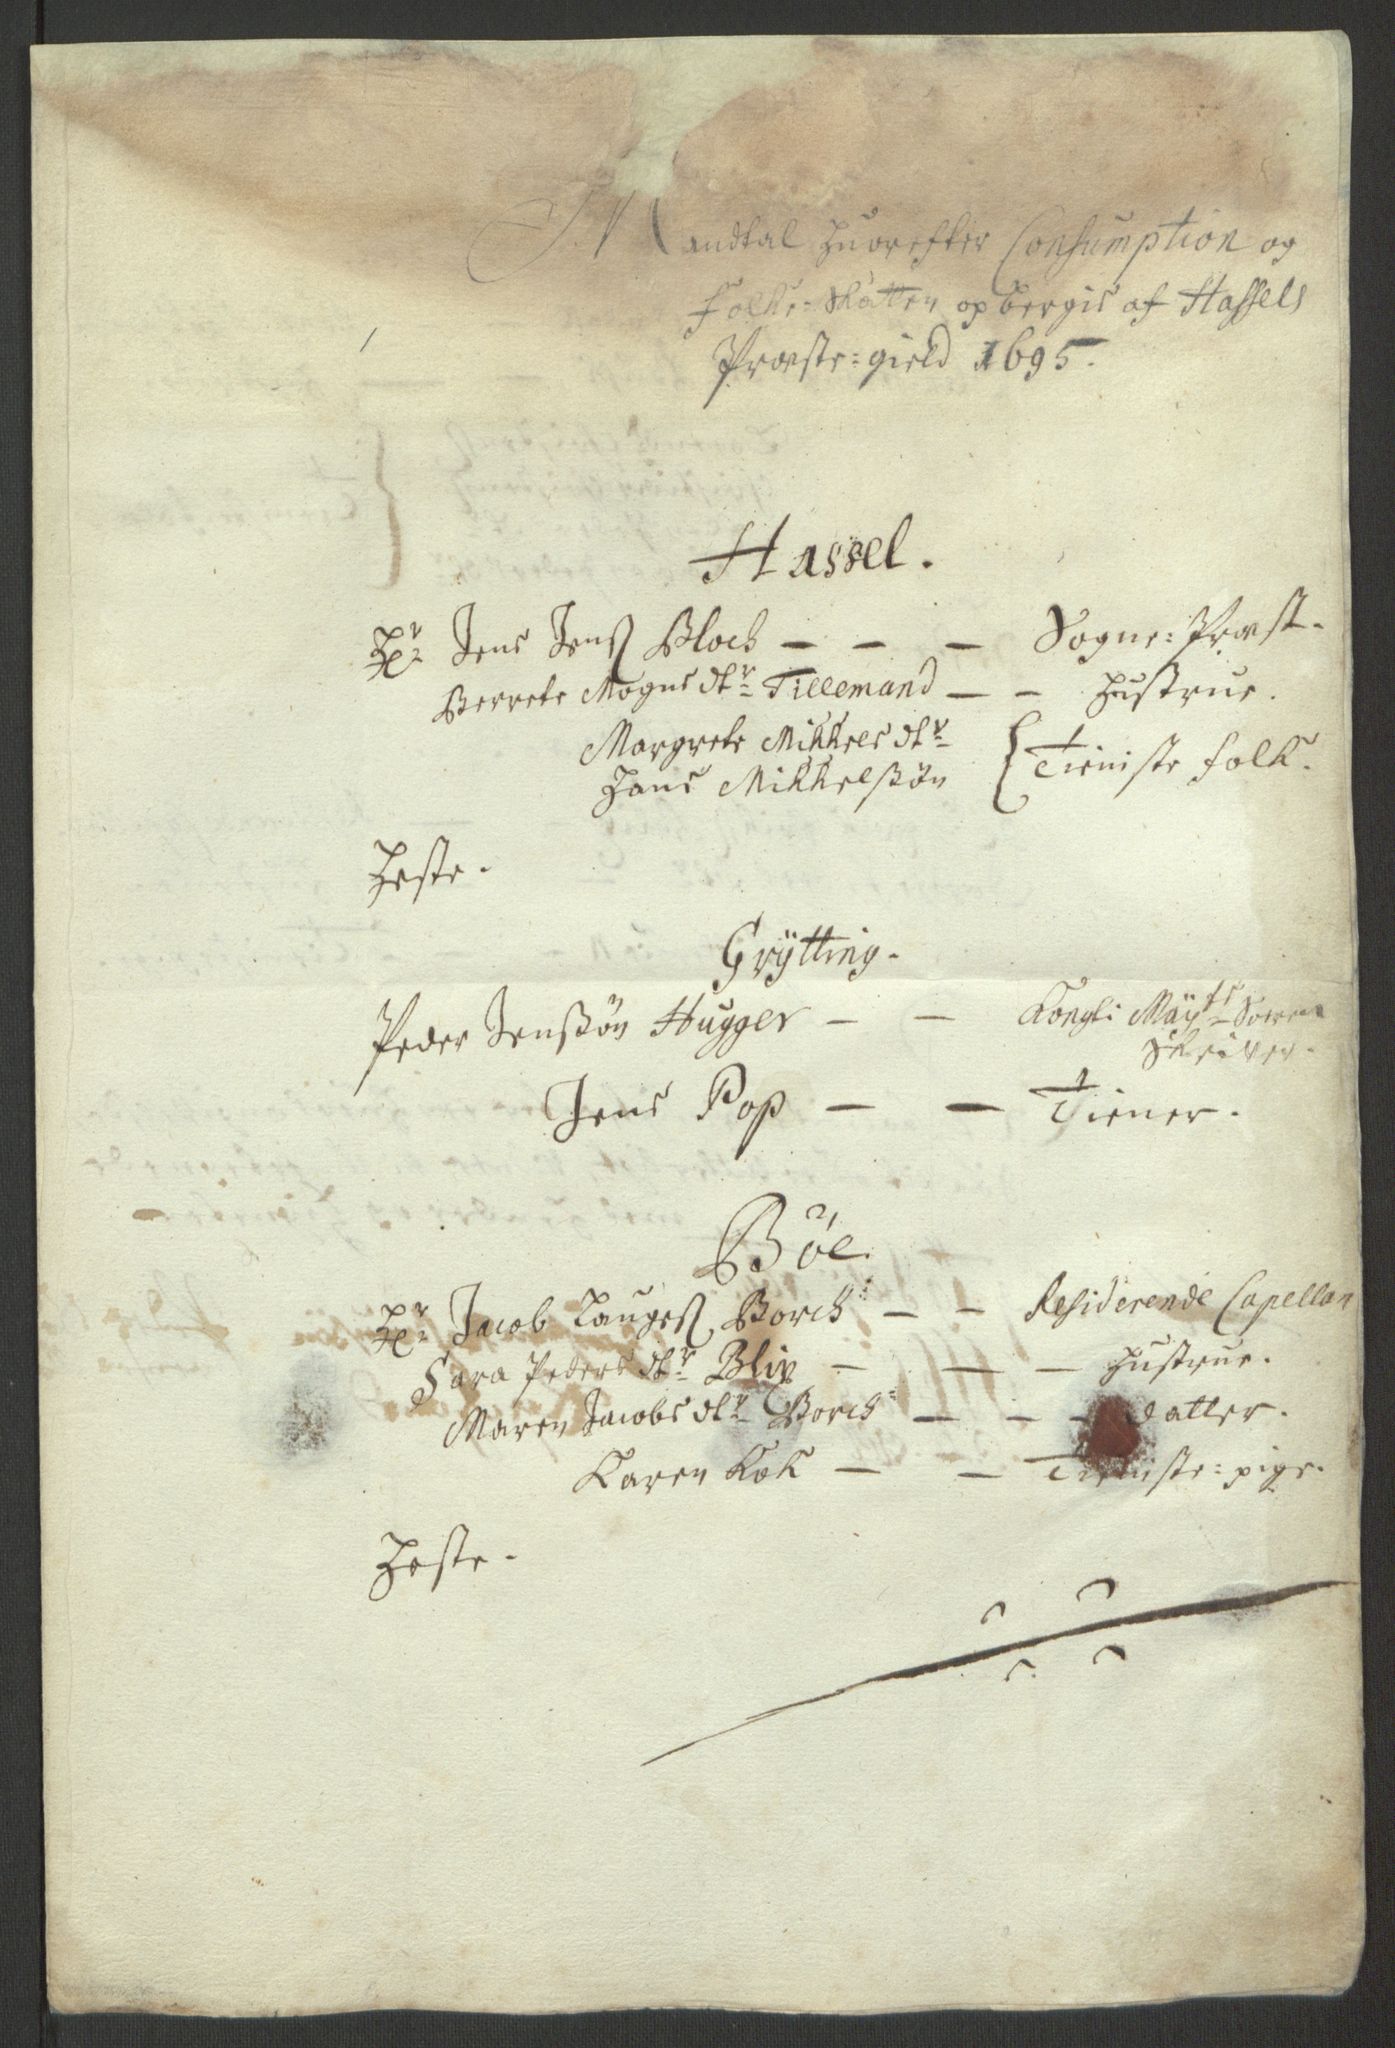 Mandtal Huorefter Consumption og
Folke-Skatten opbergis af Hassels
Præste-gield 1695.
Hassel.
Hr Jens Jenß Bloch — — — Sogne-Præst.
Berrete Mogns dtr Tillemand — — Hustrue.
Margrete Mikkels dtr
Hans Mikkelßøn { Tieniste folk.
Heste.
Grÿtting.
Peder Jenßøn Hugger — — Kongli Mayts Soren
Skriver.
Jens Pop — — Tiener.
Bøe.
Hr Jacob Laugeß Borch — — Residerende Capellan
Sara Peders dtr Blix — — — Hustrue.
Maren Jacobs dtr Borch — — — Datter.
Karen Kok — — Tieniste-pige.
Heste.